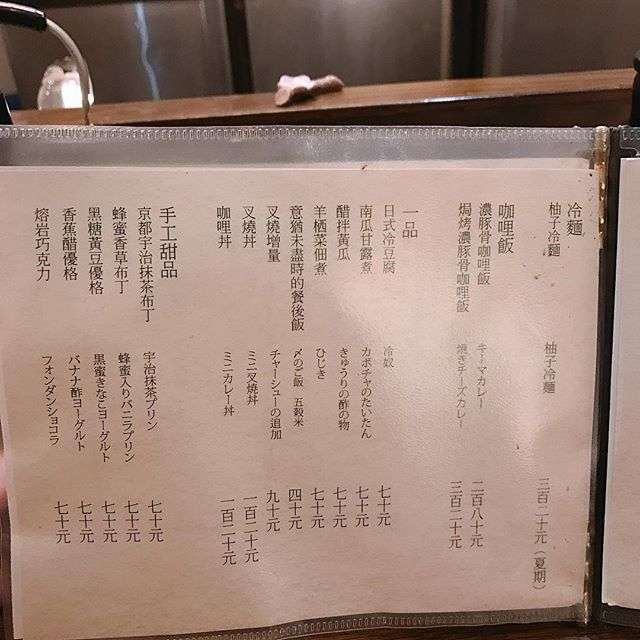 冷麵
柚子冷麵 柚子冷麺 三百二十元(夏期)
咖哩飯
濃豚骨咖哩飯 キーマカレー 二百八十元
焗烤濃豚骨咖哩飯 焼きチーズカレー 三百二十元
一品
日式冷豆腐 冷奴 七十元
南瓜甘露煮 カボチャのたいたん 七十元
醋拌黃瓜 きゅうりの酢の物 七十元
羊栖菜佃煮 ひじき 七十元
意猶未盡時的餐後飯 〆のご飯 五穀米 四十元
叉燒增量 チャーシューの追加 九十元
叉燒丼 ミニ叉焼丼 一百二十元
咖哩丼 ミニカレー丼 一百二十元
手工甜品
京都宇治抹茶布丁 宇治抹茶プリン 七十元
蜂蜜香草布丁 蜂蜜入りバニラプリン 七十元
黑糖黃豆優格 黒蜜きなこヨーグルト 七十元
香蕉醋優格 バナナ酢ヨーグルト 七十元
熔岩巧克力 フォンダンショコラ 七十元